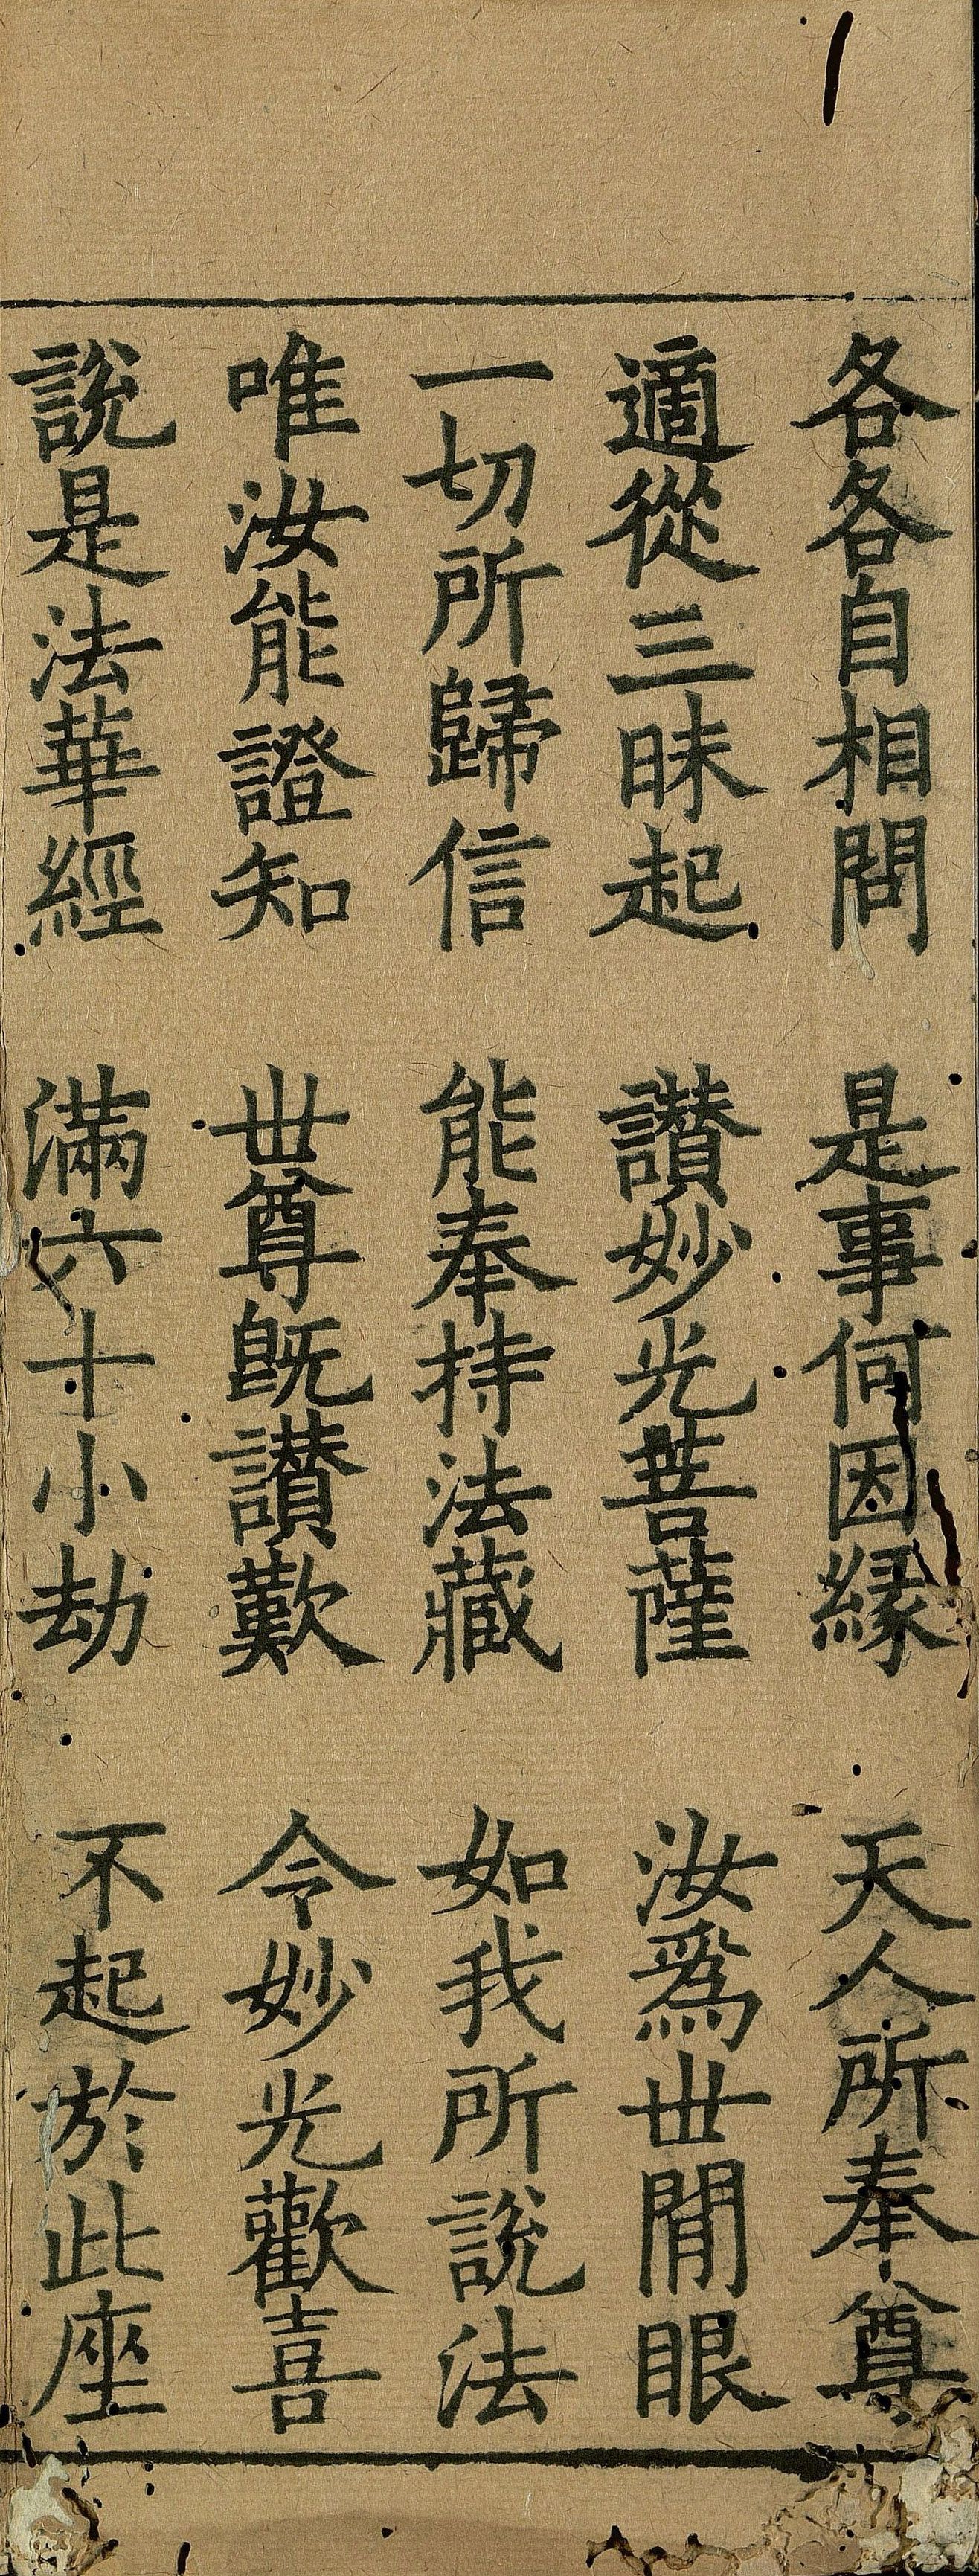 各各自相問　是事何因縁　天人所奉尊
適從三昧起　讃妙光菩薩　汝爲世閒眼
一切所歸信　能奉持法藏　如我所說法
唯汝能證知　世尊旣讃歎　令妙光歡喜
說是法華經　滿六十小劫　不起於此座